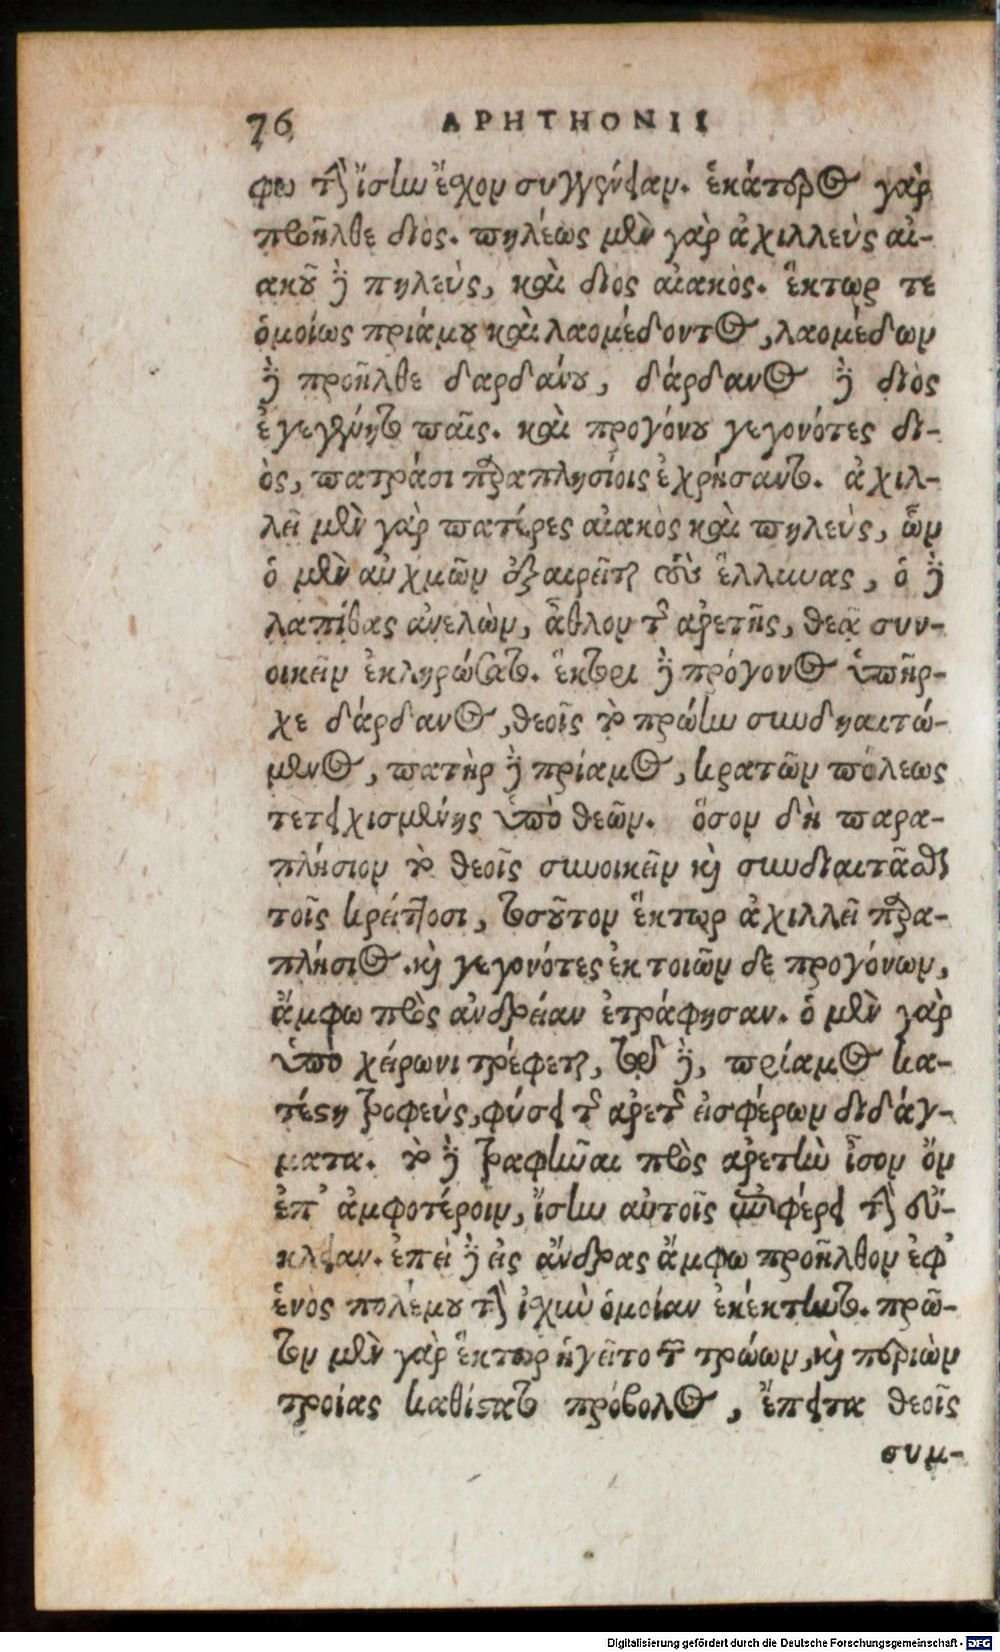 76 APHTHONII
φω τὴν ἴσην ἔχον συγγένειαν. ἑκάτερος γὰρ
προῆλθε διός. πηλέως μὲν γὰρ ἀχιλλεὺς αἰ-
ακοῦ δὲ πηλεὺς, καὶ διὸς αἰακὸς. ἕκτωρ τε
ὁμοίως πριάμου καὶ λαομέδοντος, λαομέδων
δὲ προῆλθε δαρδάνου, δάρδανος δὲ διὸς
ἐγεγένητο παῖς. καὶ προγόνου γεγονότες δι-
ὸς, πατράσι παραπλησίοις ἐχρήσαντο. ἀχιλ-
λεῖ μὲν γὰρ πατέρες αἰακὸς καὶ πηλεὺς, ὧν
ὁ μὲν αὐχμῶν ἐξαιρεῖται τοὺς ἕλληνας, ὁ δὲ
λαπίθας ἀνελὼν, ἆθλον τῆς ἀρετῆς, θεᾷ συν-
οικεῖν ἐκληρώσατο. ἕκτορι δὲ πρόγονος ὑπῆρ-
χε δάρδανος, θεοῖς τὸ πρώην συνδηαιτώ-
μενος, πατὴρ δὲ πρίαμος, κρατῶν πόλεως
τετειχισμένης ὑπὸ θεῶν. ὅσον δὴ παρα-
πλήσιον τὸ θεοῖς συνοικεῖν καὶ συνδιαιτᾶσθαι
τοῖς κρείττοσι, τοσοῦτον ἕκτωρ ἀχιλλεῖ παρα-
πλήσιος. καὶ γεγονότες ἐκ τοιῶν δε προγόνων,
ἄμφω πρὸς ἀνδρείαν ἐτράφησαν. ὁ μὲν γὰρ
ὑπὸ χείρωνι τρέφεται, τοῦ δὲ, πρίαμος κα-
τέστη τροφεὺς, φύσει τῆς ἀρετῆς εἰσφέρων διδάγ-
ματα. τὸ δὲ τραφῆναι πρὸς ἀρετὴν ἶσον ὂν
ἐπ' ἀμφοτέροιν, ἴσην αὐτοῖς περιφέρει τὴν εὔ-
κλειαν. ἐπεὶ δὲ εἰς ἄνδρας ἄμφω προῆλθον ἐφ'
ἑνὸς πολέμου τὴν ἰσχὺν ὁμοίαν ἐκέκτηντο. πρῶ-
τον μὲν γὰρ ἕκτωρ ἡγεῖτο τῶν τρώων, καὶ περιὼν
τροίας καθίστατο πρόβολος, ἔπειτα θεοῖς
συμ-
Digitalisierung gefördert durch die Deutsche Forschungsgemeinschaft - DFG